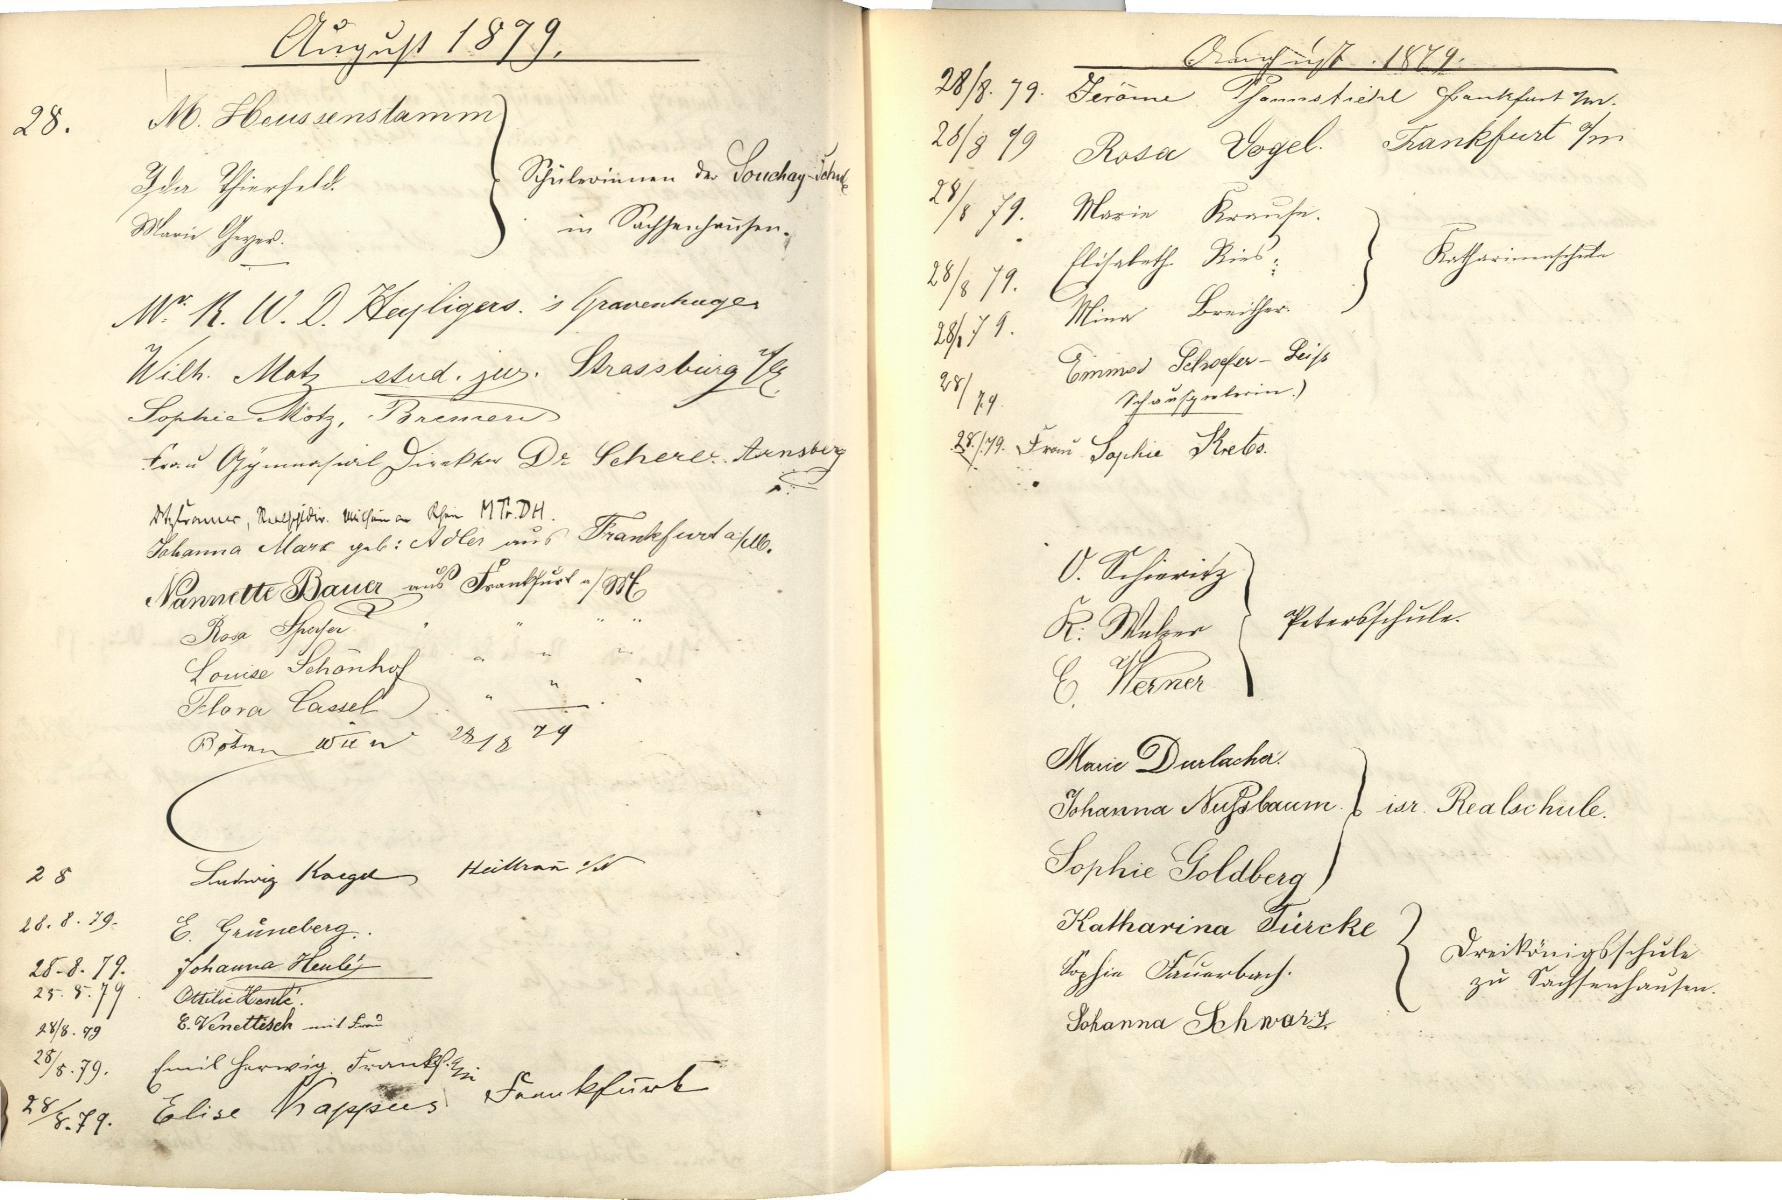 August 1879.
28. M. Heussenstamm
Ida Thierfeld.
Schülerinnen der Souchay-Schule
Marie Geyer.
in Sachsenhausen.
Mr. R. W. D. Heyligers. 's Gravenhage
Wilh. Motz stud. jur. Strassburg i/E.
Sophie Motz, Bremen
Frau Gymnasial Direktor Dr. Scherer. Arnsberg
Rhein M Tr. DH.
Johanna Marx geb: Adler aus Frankfurt a/M.
Nannette Bauer aus Frankfurt a/M
Rosa Speyer " " " "
Louise Schönhof " " "
Flora Cassel " " "
Wien 28/8 79
28 Ludwig Heilbronn a/N
28.8.79. E. Grüneberg.
28.8.79. Johanna Henle
28.8.79 Ottilie Henle.
28/8.79 E. Venettisch mit Frau
28/8.79. Emil Herwig. Frankf. a/m
28/8.79. Elise Kappus Frankfurt
August. 1879.
28/8.79. Jérôme Pfannstiehl Frankfurt a/m.
28/8 79 Rosa Vogel. Frankfurt a/m
28/8 79. Marie Krause.
28/8 79. Elisabeth Ries.
Katharinenschule
28/8 79. Mina
28/ 79. Emma Schaefer-
Schauspielerin.)
28./.79. Frau Sophie Krebs.
O. Schieritz
K. Walzer
Petersschule.
E. Werner
Marie Durlacher.
Johanna Nußbaum. isr. Realschule.
Sophie Goldberg
Katharina Türcke
Dreikönigsschule
Sophie Fauerbach.
zu Sachsenhausen.
Johanna Schwarz